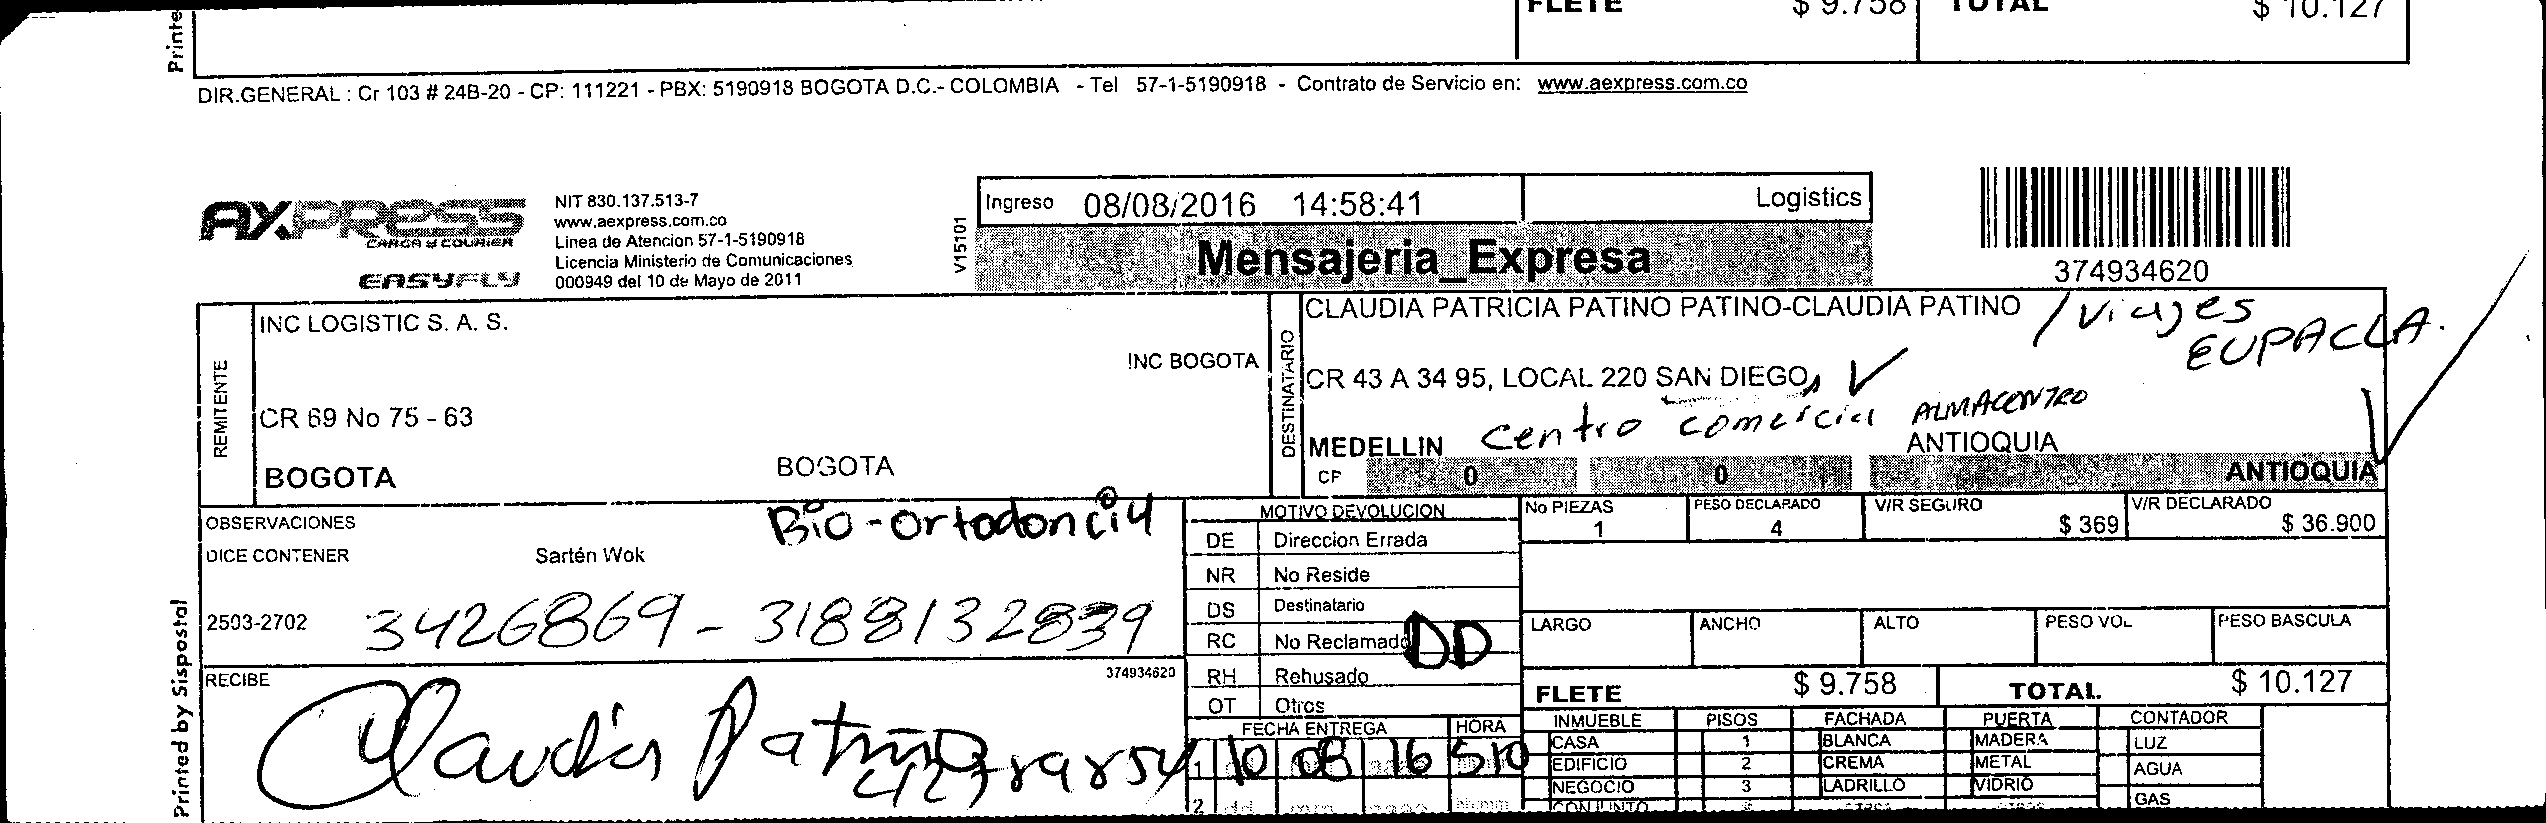 FLETE $ 9.758 TOTAL $ 10.127
Printe
DIR.GENERAL : Cr 103 # 24B-20 - CP: 111221 - PBX: 5190918 BOGOTA D.C.- COLOMBIA - Tel 57-1-5190918 - Contrato de Servicio en: www.aexpress.com.co
AXPRESS
CARGA Y COURIER
EASYFLY
NIT 830.137.513-7
www.aexpress.com.co
Linea de Atencion 57-1-5190918
Licencia Ministerio de Comunicaciones
000949 del 10 de Mayo de 2011
V15101
Ingreso 08/08/2016 14:58:41 Logistics
Mensajeria_Expresa
374934620
REMITENTE
INC LOGISTIC S. A. S.
INC BOGOTA
CR 69 No 75 - 63
BOGOTA BOGOTA
DESTINATARIO
CLAUDIA PATRICIA PATINO PATINO-CLAUDIA PATINO / Viajes
EUPACLA.
CR 43 A 34 95, LOCAL 220 SAN DIEGO
Centro comercial ALMACENTRO
MEDELLIN ANTIOQUIA
CP 0 0 ANTIOQUIA
OBSERVACIONES Bio-ortodoncia
DICE CONTENER Sartén Wok
2503-2702 3426869 - 3188132839
RECIBE 374934620
Claudia Patiño
MOTIVO DEVOLUCION
DE Direccion Errada
NR No Reside
DS Destinatario
RC No Reclamado DD
RH Rehusado
OT Otros
FECHA ENTREGA HORA
1 10 08 16 510
2 dd mm aaaa hh:mm
No PIEZAS PESO DECLARADO V/R SEGURO V/R DECLARADO
1 4 $ 369 $ 36.900
LARGO ANCHO ALTO PESO VOL PESO BASCULA
FLETE $ 9.758 TOTAL $ 10.127
INMUEBLE PISOS FACHADA PUERTA CONTADOR
CASA 1 BLANCA MADERA LUZ
EDIFICIO 2 CREMA METAL AGUA
NEGOCIO 3 LADRILLO VIDRIO GAS
CONJUNTO
Printed by Sispostal